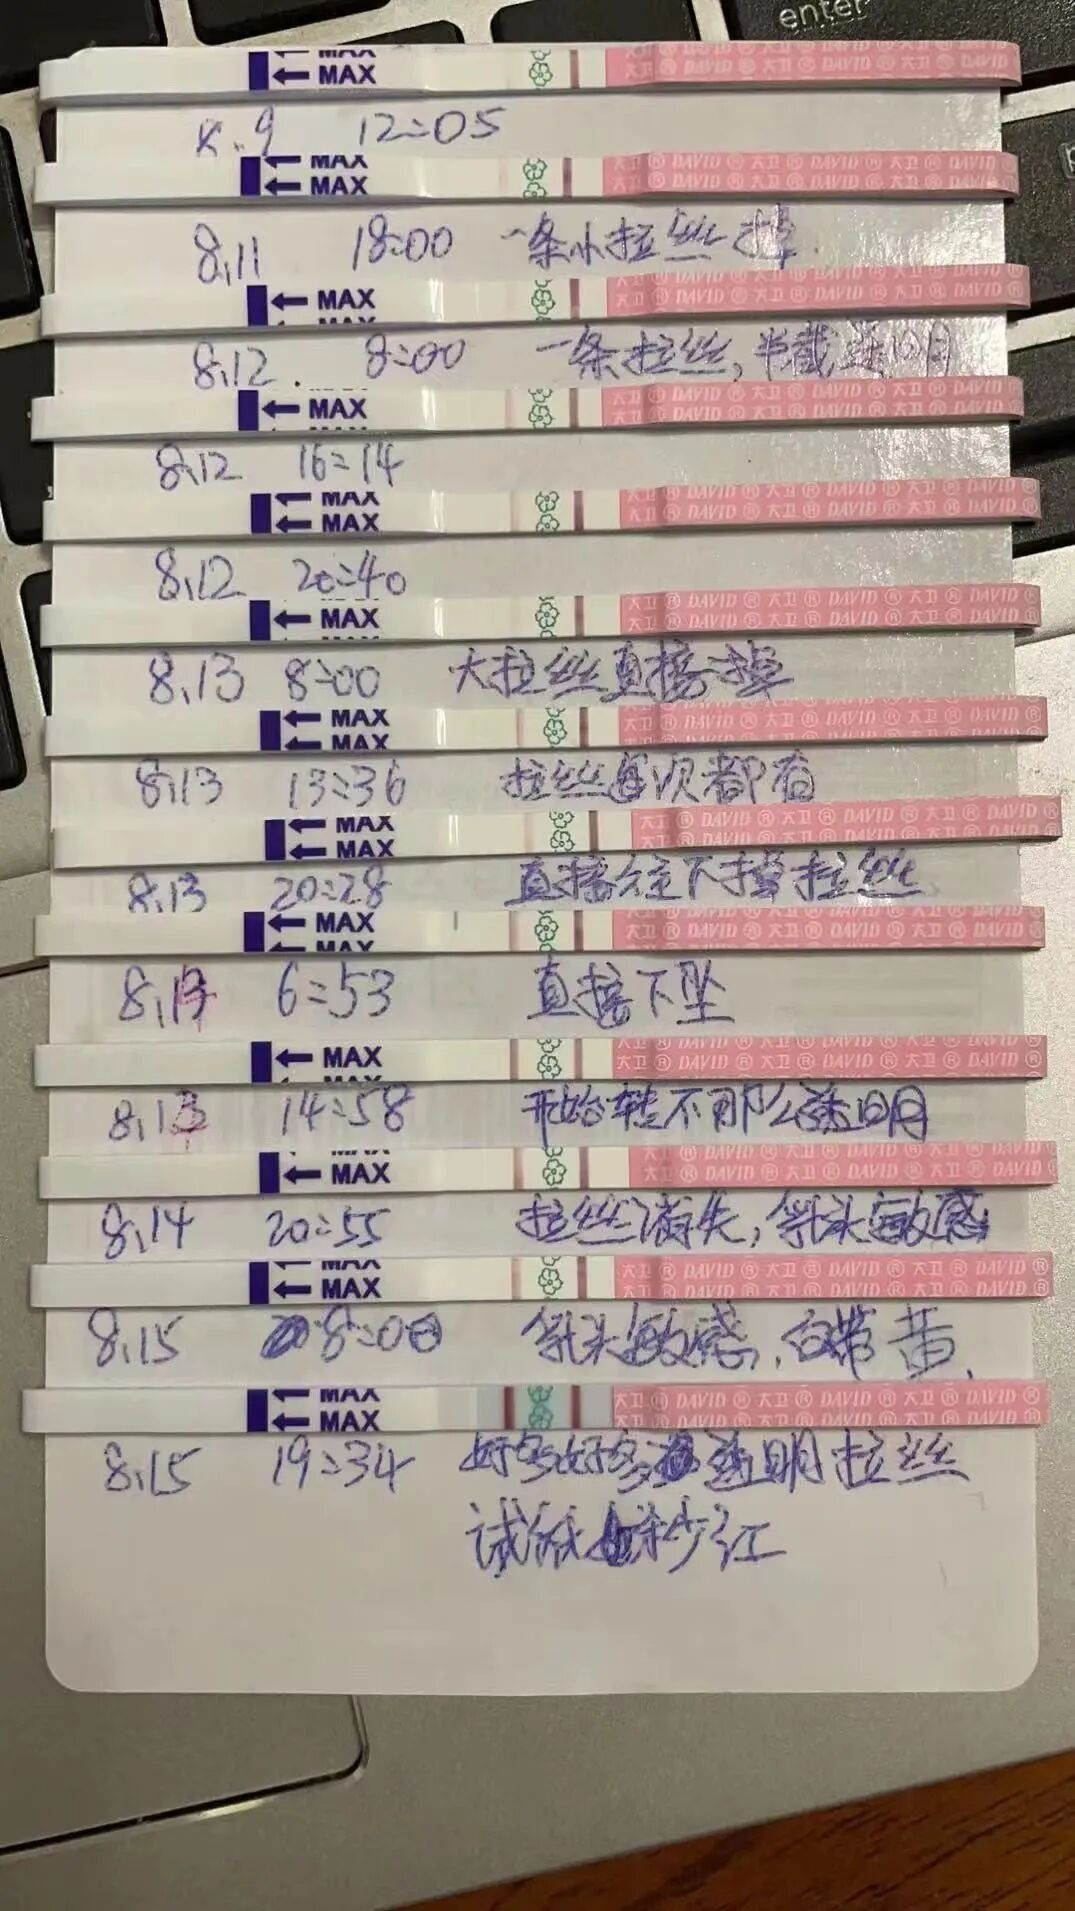 enter
MAX
MAX
大卫 ® DAVID ® 大卫 ® DAVID ® 大卫 ® DAVID ®
8.9 12:05
MAX
MAX
® DAVID ® 大卫 ® DAVID ® 大卫 ® DAVID
8.11 18:00 一条小拉丝掉.
MAX
® DAVID ® 大卫 ® DAVID ® 大卫 ® DAVID ®
8.12. 8:00 一条拉丝,半截透明
MAX
大卫 ® DAVID ® 大卫 ® DAVID ® 大卫 ® DAVID ®
8.12 16:14
MAX
MAX
大卫 ® DAVID ® 大卫 ® DAVID ® 大卫 ® DAVID
8.12 20:40
MAX
大卫 ® DAVID ® 大卫 ® DAVID ® 大卫 ® DAVID ®
8.13 8:00 大拉丝直接掉
MAX
MAX
大卫 ® DAVID ® 大卫 ® DAVID ® 大卫 ® DAVID ®
8.13 13:36 拉丝每次都有
MAX
MAX
大卫 ® DAVID ® 大卫 ® DAVID ® 大卫 ® DAVID
8.13 20:28 直接往下掉拉丝
MAX
MAX
大卫 ® DAVID ® 大卫 ® DAVID ® 大卫 ® DAVID
8.14 6:53 直接下坠
MAX
大卫 ® DAVID ® 大卫 ® DAVID ® 大卫 ® DAVID ®
8.14 14:58 开始转不那么透明
MAX
大卫 ® DAVID ® 大卫 ® DAVID ® 大卫 ® DAVID ®
8.14 20:55 拉丝消失,乳头敏感
MAX
MAX
大卫 ® DAVID ® 大卫 ® DAVID ® 大卫 ® DAVID ®
8.15 8:00 乳头敏感,白带黄,
MAX
MAX
大卫 ® DAVID ® 大卫 ® DAVID ® 大卫 ® DAVID ®
8.15 19:34 好多好多透明拉丝
试纸秒红